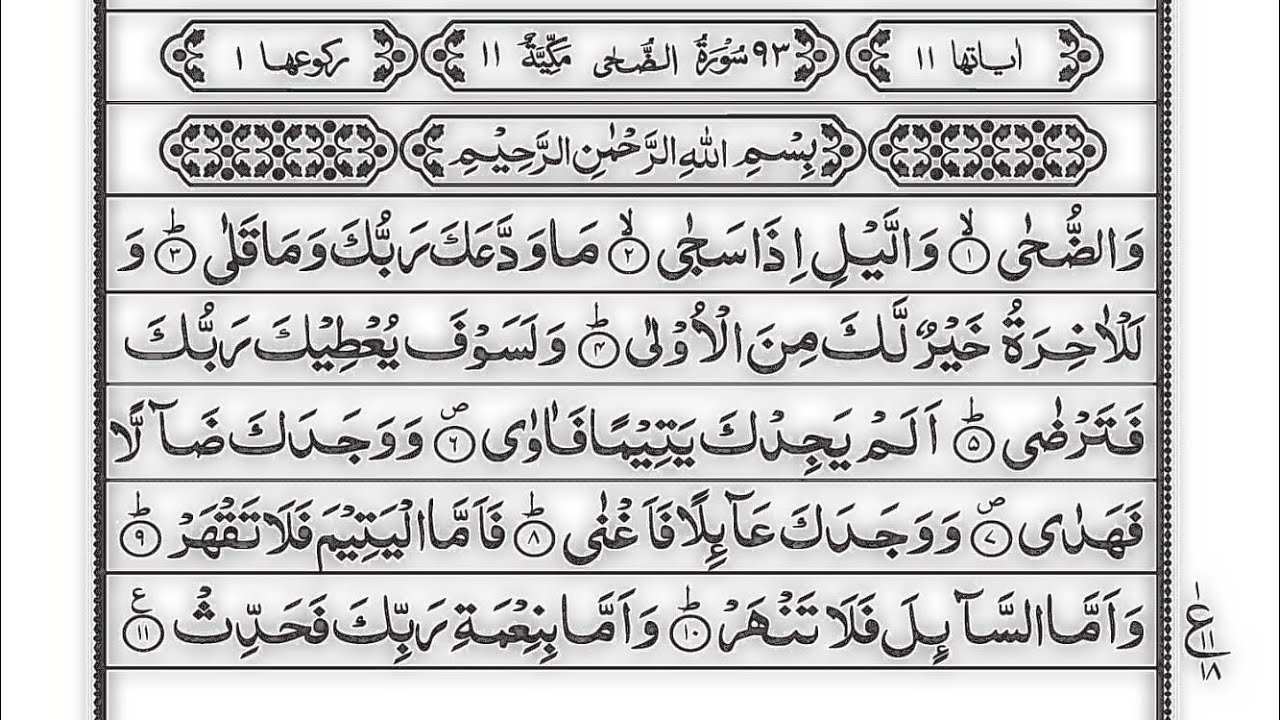 اٰیاتها ۱۱ ۹۳ سُوْرَةُ الضُّحٰی مَکِّیَّةٌ ۱۱ رکوعها ۱
بِسْمِ اللهِ الرَّحْمٰنِ الرَّحِیْمِ
وَالضُّحٰی ۙ﴿۱﴾ وَالَّیْلِ اِذَا سَجٰی ۙ﴿۲﴾ مَا وَدَّعَكَ رَبُّكَ وَمَا قَلٰی ؕ﴿۳﴾ وَ
لَلْاٰخِرَةُ خَیْرٌ لَّكَ مِنَ الْاُوْلٰی ؕ﴿۴﴾ وَلَسَوْفَ یُعْطِیْكَ رَبُّكَ
فَتَرْضٰی ؕ﴿۵﴾ اَلَمْ یَجِدْكَ یَتِیْمًا فَاٰوٰی ۪﴿۶﴾ وَوَجَدَكَ ضَآلًّا
فَهَدٰی ۪﴿۷﴾ وَوَجَدَكَ عَآئِلًا فَاَغْنٰی ؕ﴿۸﴾ فَاَمَّا الْیَتِیْمَ فَلَا تَقْهَرْ ؕ﴿۹﴾
وَاَمَّا السَّآئِلَ فَلَا تَنْهَرْ ؕ﴿۱۰﴾ وَاَمَّا بِنِعْمَةِ رَبِّكَ فَحَدِّثْ ﴿۱۱﴾ ع
ع
۱۱
۱۸